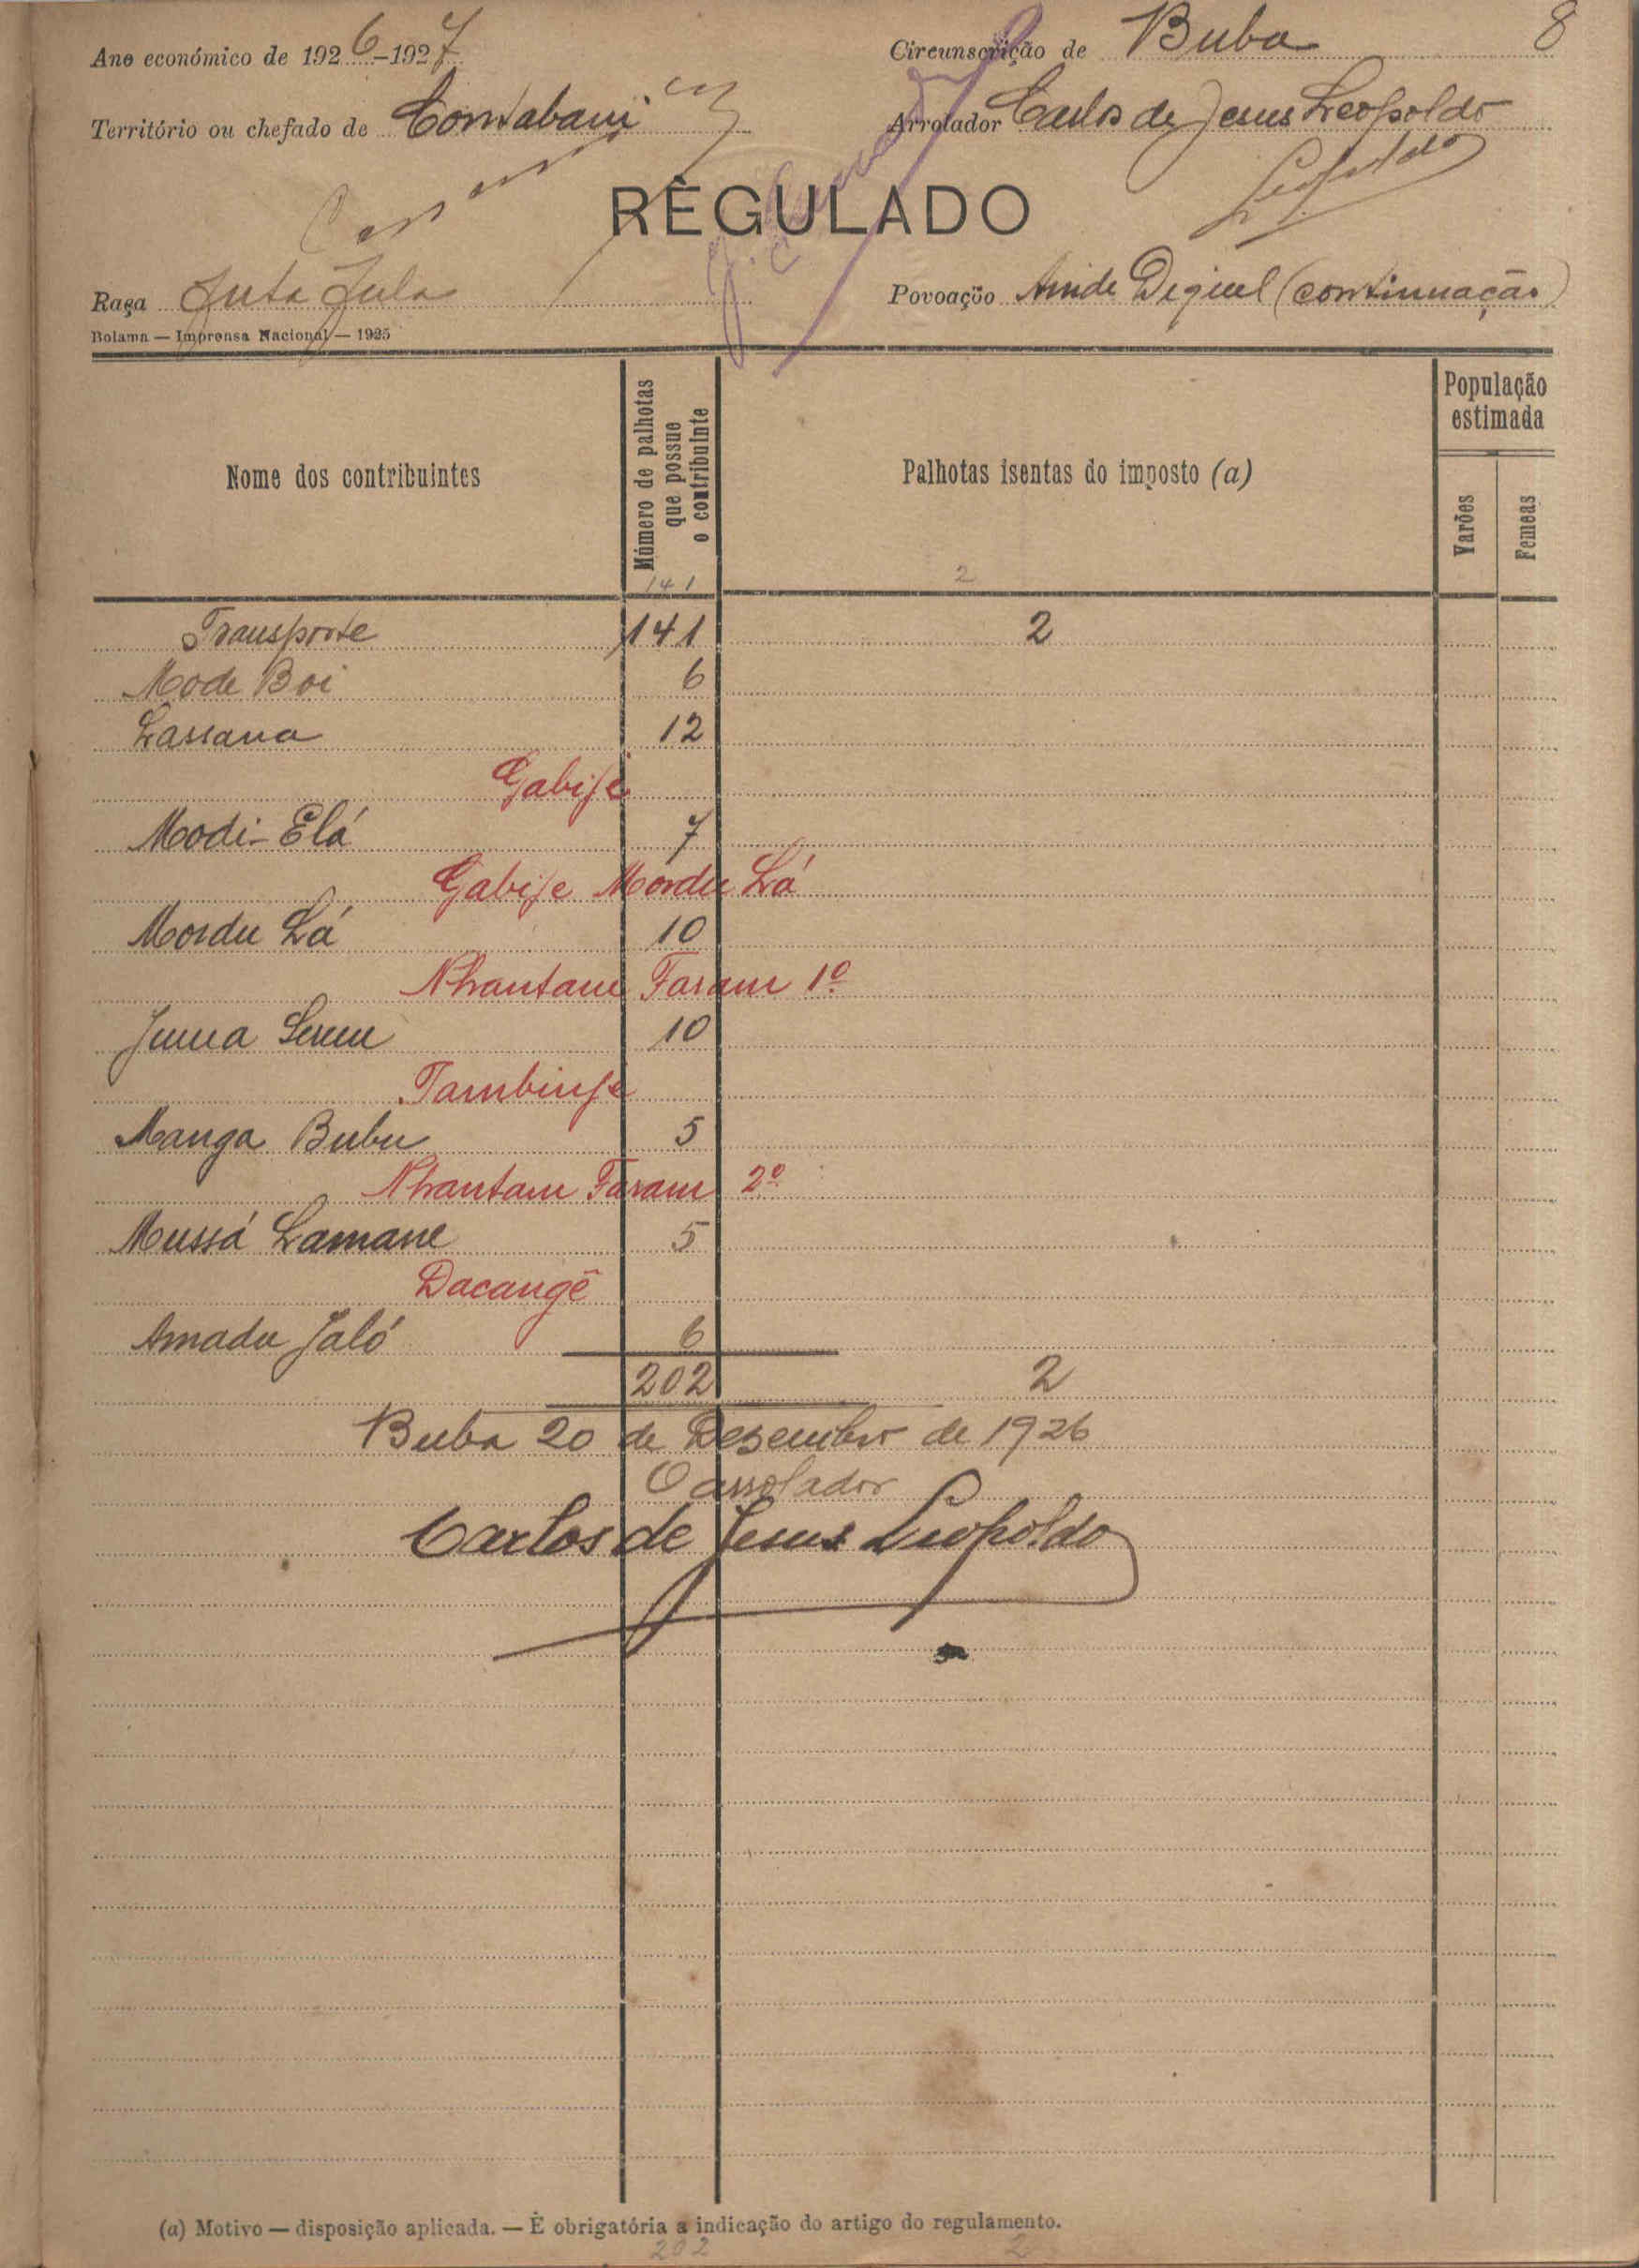 8
Ano económico de 1926-1927 Circunscrição de Buba
Território ou chefado de Contabani Arrolador Carlos de Jesus Leopoldo
Leopoldo
RÊGULADO
Raça Futa Fula Povoação Ainde Diquel (continuação)
Bolama — Imprensa Nacional — 1925
Nome dos contribuintes
Número de palhotas que possue o contribuinte
Palhotas isentas do imposto (a)
População estimada
Varões
Femeas
141 2
Transporte 141 2
Mode Boi 6
Lassana 12
Gabije
Modi-Elá 7
Gabije Mordu Lá
Mordu Lá 10
Nhantam Faram 1º
Juma Serem 10
Tambinje
Manga Bubu 5
Nhantam Faram 2º
Mussá Lamane 5
Dacangê
Amadu Jaló 6
202 2
Buba 20 de Dezembro de 1926
O arrolador
Carlos de Jesus Leopoldo
(a) Motivo — disposição aplicada. — É obrigatória a indicação do artigo do regulamento.
202 2